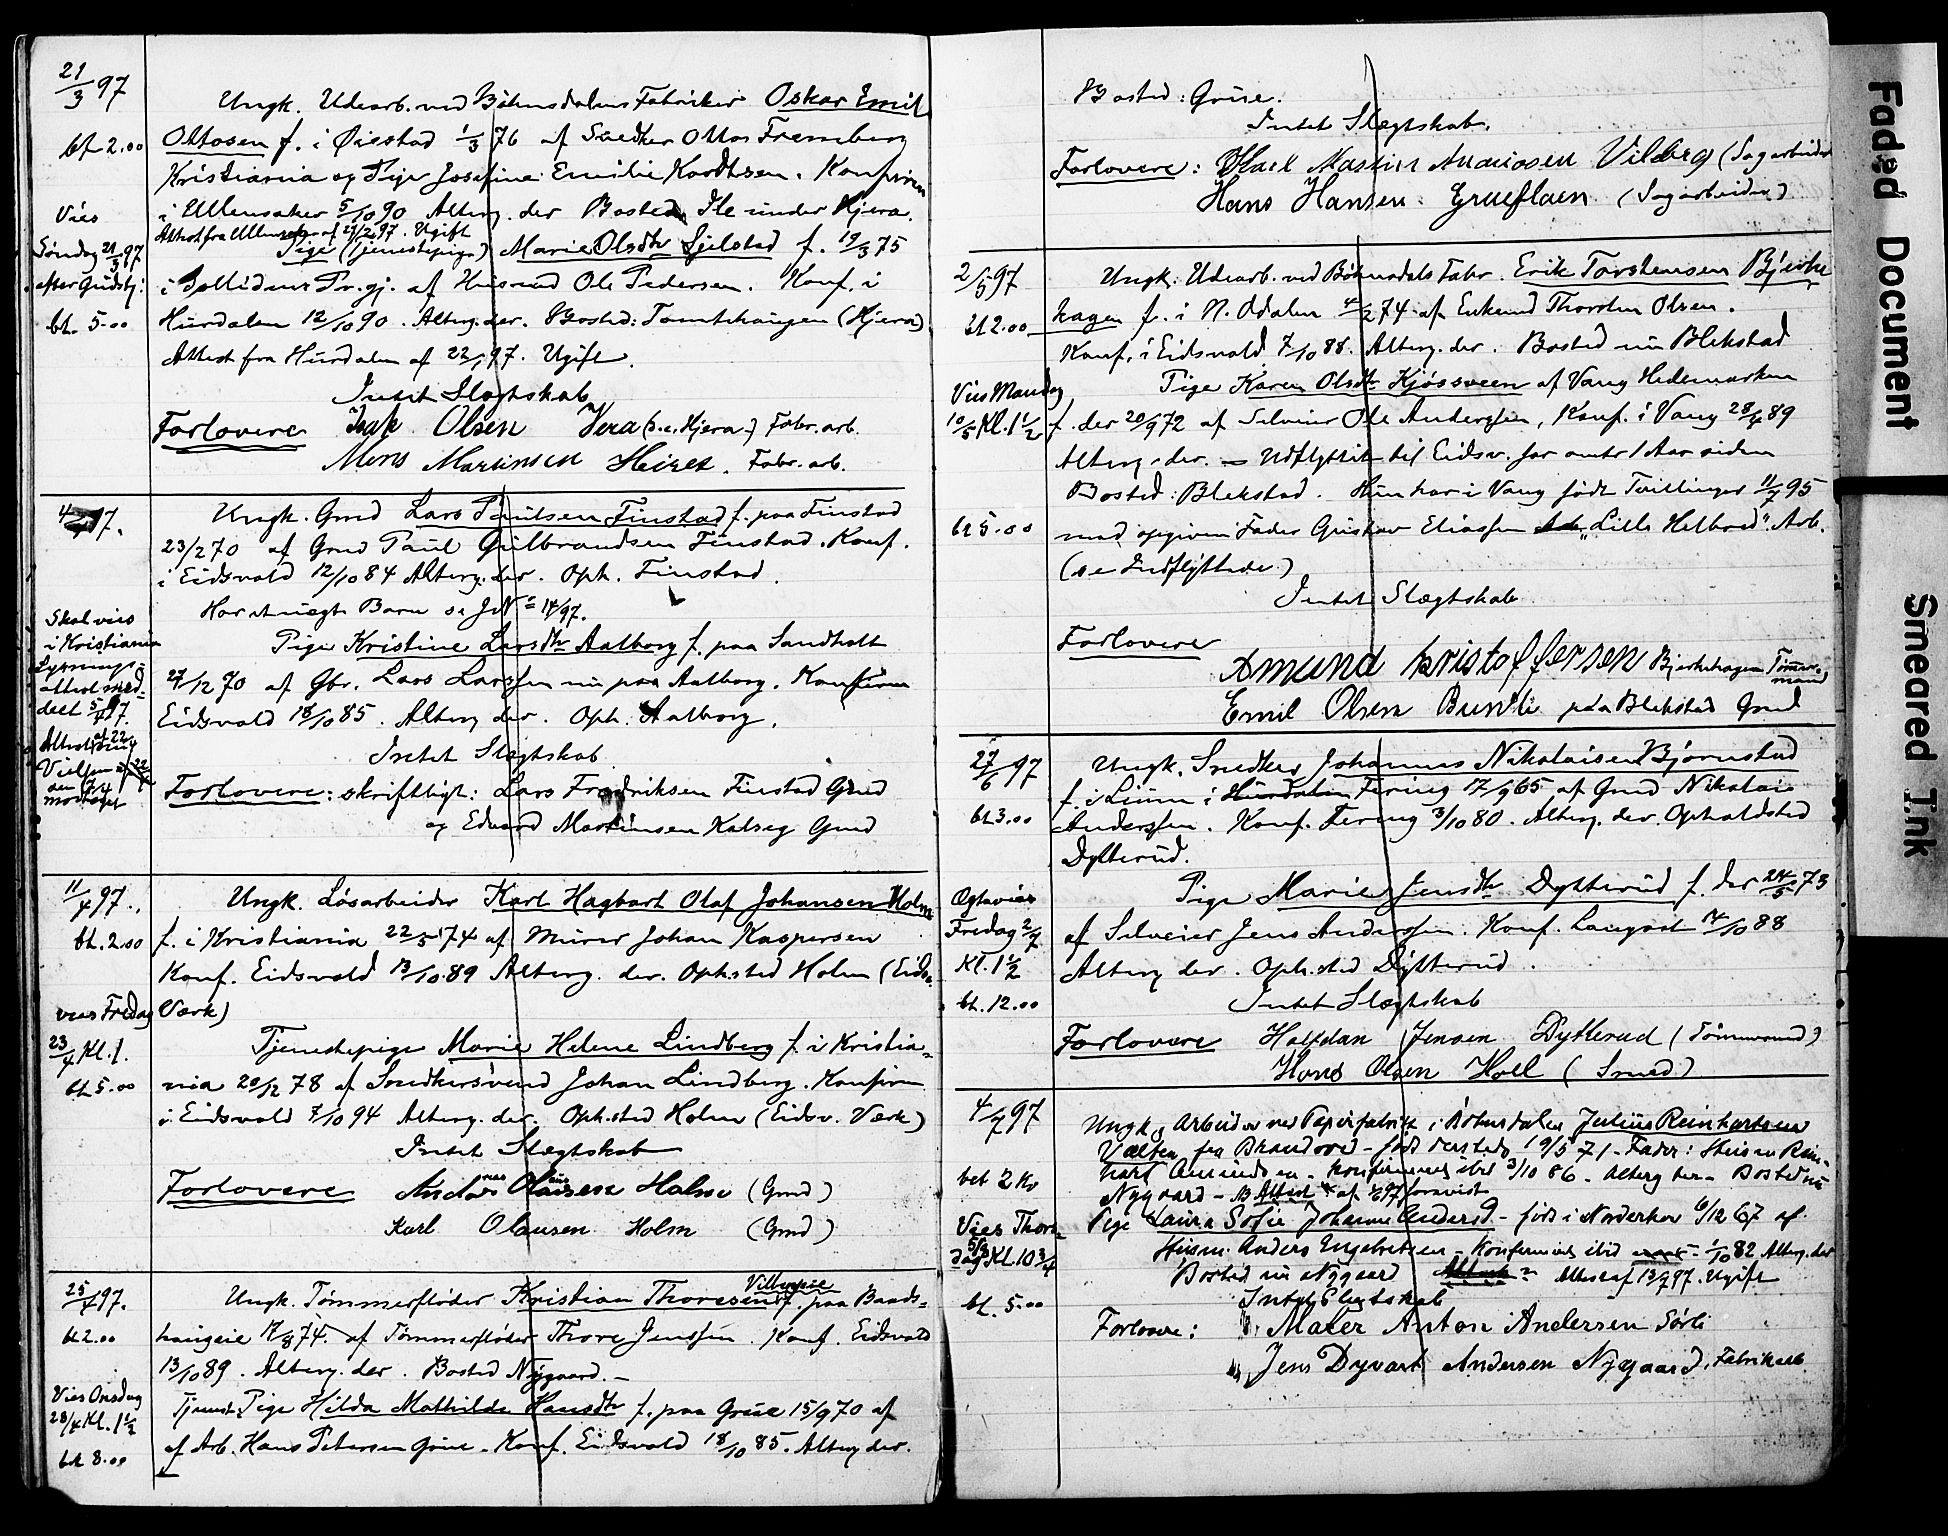 21/3 97
Ungk. Udearb. ved Bøhnsdalens Fabriker Oskar Emil
bt. 2.00
Ottosen f. i Øiestad 1/3 76 af Snedker Ottos Fremberg
Kristiania og Pige Josefine Emilie Kordtsen. Konfirm
Vies
i Ullensaker 5/10 90 Alterg. der Bosted Ile under Hjera.
Attest fra Ullensaker af 27/2 97. Ugift
Søndag 21/3 97
Pige (Tjenestepige) Marie Olsdtr Gjelstad f. 19/3 75
efter Gudstj:
i Pr.gj. af Husmd Ole Pedersen. Konf. i
bt. 5.00
Hurdalen 12/10 90. Alterg. der. Bosted: Tomtehaugen (Hjera)
Attest fra Hurdalen af 22/1 97. Ugift.
Intet Slægtskab
Forlovere Isak Olsen Jera (s.e. Hjera) Fabr. arb.
Mons Martinsen Heiret. Fabr. arb.
4/4 97.
Ungk. Gmd Lars Paulsen Finstad f. paa Finstad
23/2 70 af Gmd Paul Gulbrandsen Finstad. Konf.
i Eidsvold 12/10 84 Alterg. der. Oph. Finstad.
Har et uegte Barn se J N° 14/97.
Skal vies
i Kristiania
Lysnings-
attest med-
delt 5/4 97.
Pige Kristine Larsdtr Aalborg f. paa Sandholt
27/12 70 af Gbr. Lars Larssen nu paa Aalborg. Konfirm
Eidsvold 18/10 85. Alterg. der. Oph. Aalborg.
Intet Slægtskab
Forlovere: skriftligt: Lars Fredriksen Finstad Gmd
modtaget
og Edvard Martinsen Kalseg Gmd
11/4 97.
Ungk. Løsarbeider Karl Hagbart Olaf Johansen Holm
bt. 2.00
f. i Kristiania 22/5 74 af Murer Johan Kaspersen
Konf. Eidsvold 13/10 89 Alterg. der. Oph.sted Holm (Eidsv.
vies Fredag
Værk)
23/4 Kl. 1.
Tjenestepige Marie Helene Lindberg f. i Kristia-
nia 20/12 78 af Snedkersvend Johan Lindberg. Konfirm
bt 5.00
i Eidsvold 7/10 94 Alterg. der. Oph.sted Holm (Eidsv. Værk)
Intet Slægtskab
Forlovere Andreas Olausen Holm (Gmd)
Karl Olausen Holm (Gmd)
25/4 97.
Ungk. Tømmerfløder Kristian Thoresen f. paa Baads-
bt 2.00
haugeie 17/8 74. af Tømmerfløder Thore Jenssen. Konf. Eidsvold
13/10 89. Alterg. der. Bosted Nygaard. -
Vies Onsdag
28/4 Kl. 1 1/2
Tjenest. Pige Hilda Mathilde Hansdtr f. paa Grue 15/9 70 af
bt 8.00
af Arb. Hans Petersen Grue. Konf. Eidsvold 18/10 85. Alterg der.
Bosted: Grue.
Intet Slægtskab.
Forlovere: Karl Martin Ananiasen Vilberg (Sagarbeider
Hans Hansen Grueflaen (Sagarbeider)
2/5 97
Ungk. Udearb. ved Bøhnsdals Fabr. Erik Torstensen Bjerke
bt 2.00
hagen f. i N. Odalen 4/2 74 af Enkemd Thorsten Olsen.
Konf. i Eidsvold 7/10 88. Alterg. der. Bosted nu Blekstad
Vies Mandag
Pige Karen Olsdtr Kjøssveen af Vang Hedemarken
10/5 Kl. 1 1/2
f. der 20/9 72 af Selveier Ole Anderssen, Konf. i Vang 28/4 89
Alterg. der. - Udflyttet til Eidsv. for omtr 1 Aar siden
Bosted: Blekstad. Hun har i Vang født Tvillinger 11/7 95
bt 5.00
med opgiven Fader Gustav Eliassen "Lille Helbred". Arb.
(se Indflyttede.)
Intet Slægtskab
Forlovere
Amund Kristoffersen Bjerkehagen Tømmer-
mand
Emil Olsen Bundli paa Blekstad Gmd
27/6 97
Ungk. Snedker Johannes Nikolaisen Bjørnstad
f. i Lium i Hurdalen Fering 17/9 65 af Gmd Nikolai
bt 3.00
Anderssen. Konf. Fering 3/10 80. Alterg. der. Opholdsted
Dytterud.
Pige Marie Jensdtr Dytterud f. der 24/5 73
Ogtavies
Fredag 2/7
Kl. 1 1/2
af Selveier Jens Anderssen. Konf. Langset 14/10 88
Alterg der. Oph.sted Dytterud.
bt. 12.00
Intet Slægtskab
Forlovere Halfdan Jensen Dytterud (Tømmermd)
Hans Olsen Holl (Smed.)
4/7 97
Ungk. Arbeider ved Papirfabrik i Bøhnsdalen Julius Reinhartsen
Vælten fra Brandvold - født dersteds 19/5 71 - Fader: Husm Rein-
bet 2 Kr
hart Amundsen - Konfirmeret ibid 3/10 86 - Alterg der - Bosted nu
Nygaard - Attest af forevist
Vies Thors-
dag 5/8 Kl. 10 3/4
Pige Laura Sofie Johanne Andersd. - født i Norderhov 6/12 67 af
Husm. Anders Engebretsen - Konfirmeret ibid 1/10 82 Alterg. der
Bosted nu Nygaard Attest af 13/7 97. Ugift
bt. 5.00
Intet Slegtskab
Forlovere: Maier Anton Andersen Sørli
Jens Dyvart Andersen Nygaard, Fabrikarb.
Faded Document
Smeared Ink